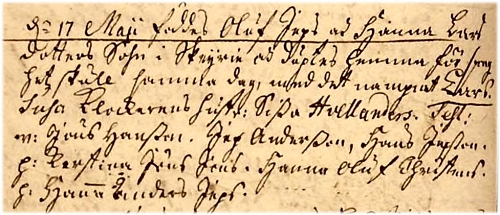 D: 17 Maji föddes Oluf Jeps ad Hanna Lars
dotters Sohn i Skeyrie ad döptes hemma för
het skulle samma dag, med det nampnet Lars.
Susa Klockerens hustr: Sissa Hollanders. Test:
v: Jöns Hansson. Jep Andersson, Hans Jepson.
p: Kerstina Jens Jöns. Hanna Oluf Christens.
p: Hanna Anders Jeps.